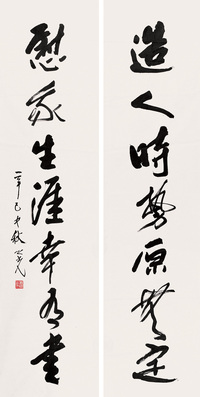 造人時勢原無定
慰我生涯幸有書
辛巳